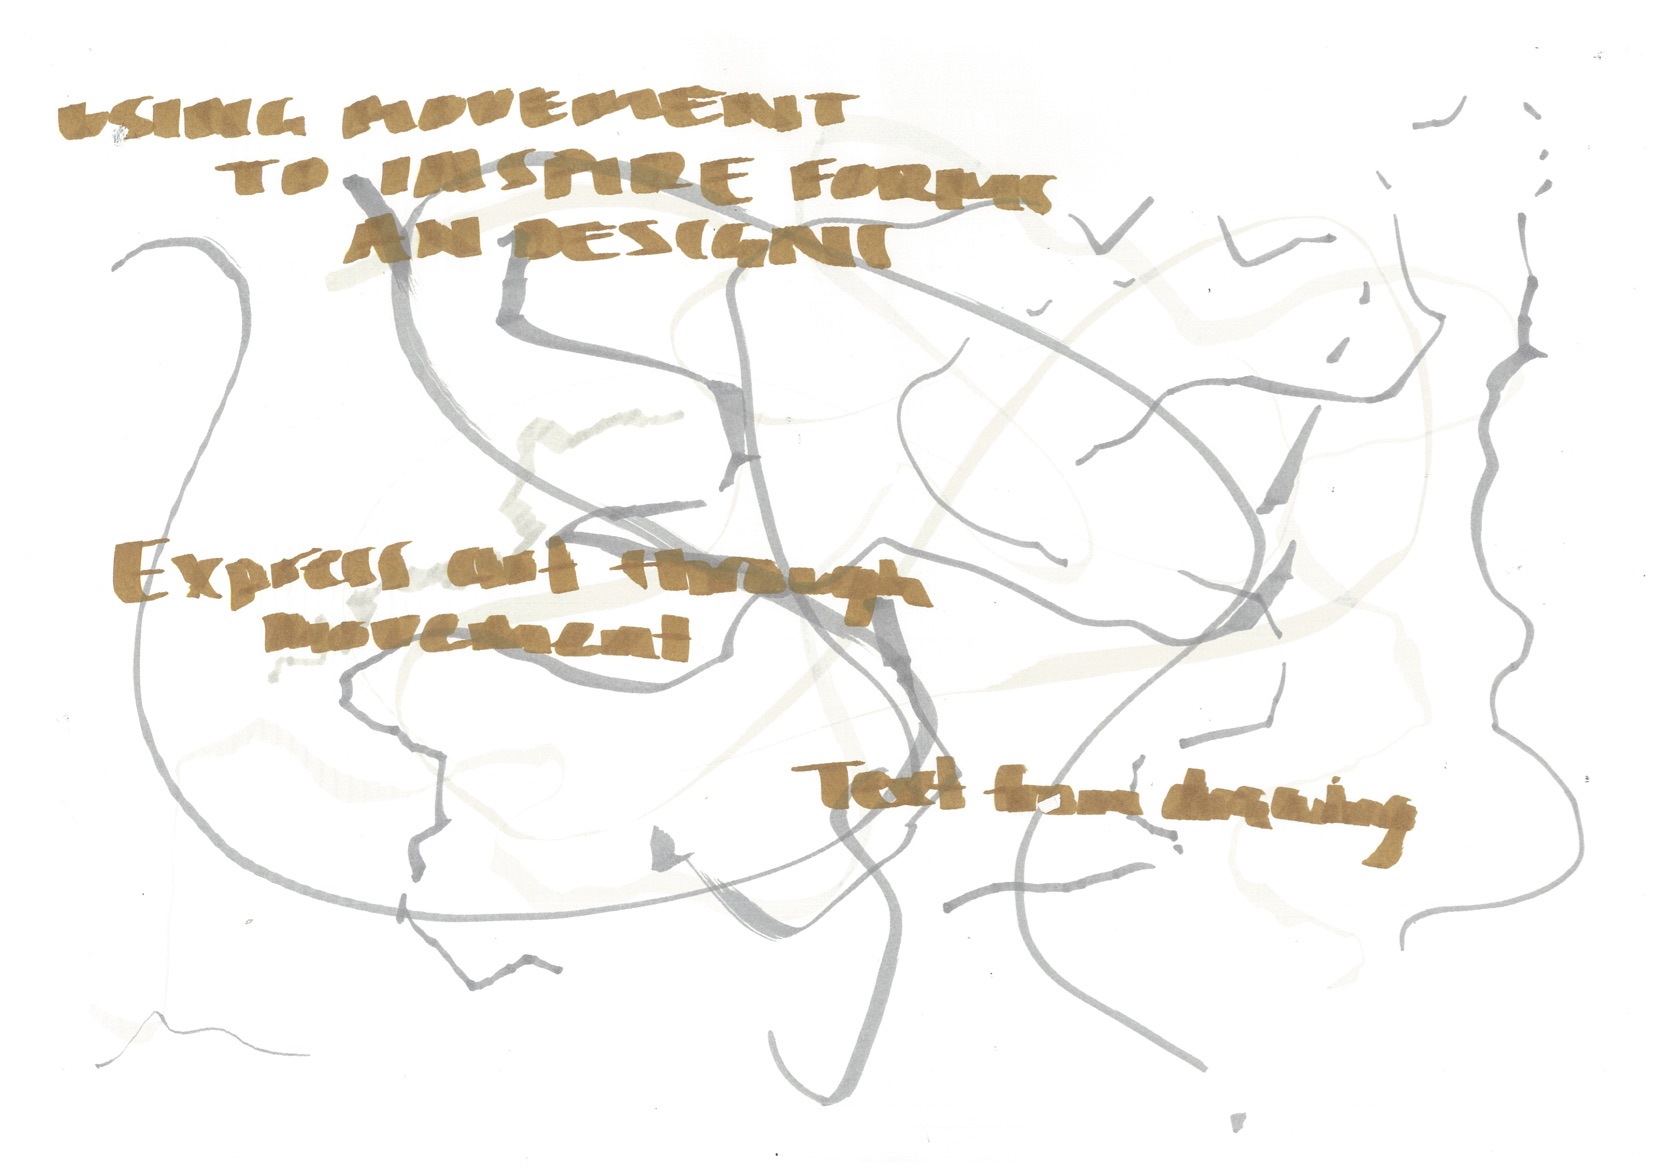 USING MOVEMENT
TO INSPIRE FORMS
AN DESIGNS
Express art through
movement
Text from drawing